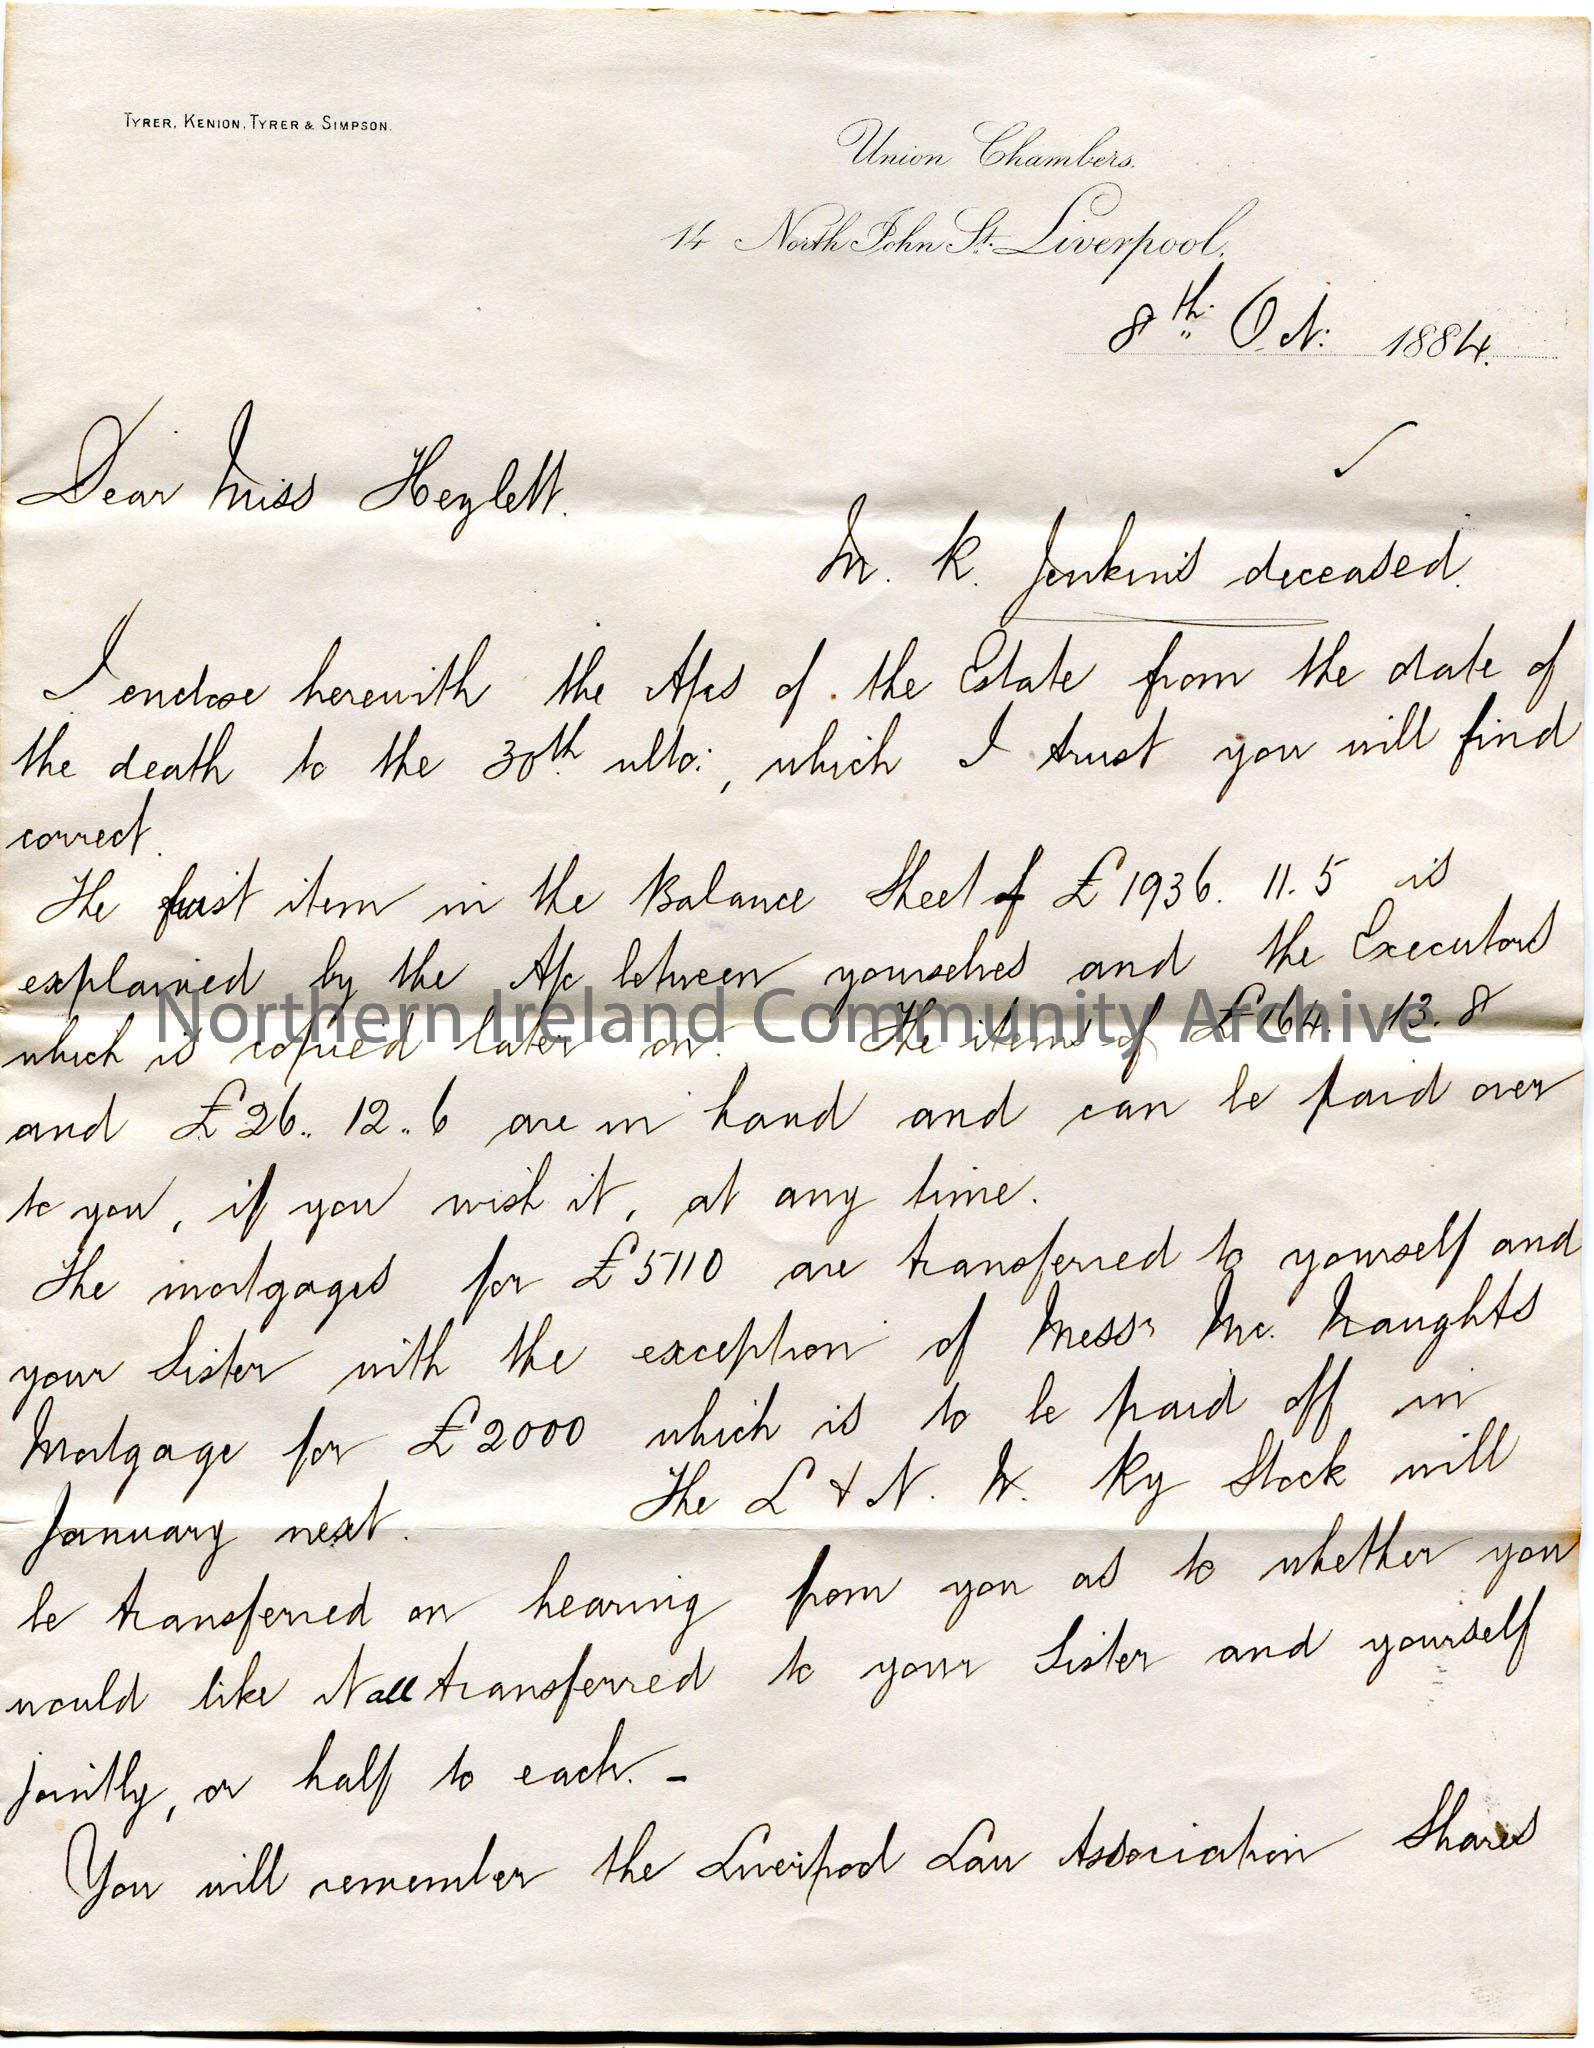 TYRER, KENION, TYRER & SIMPSON.
Union Chambers.
14 North John St. Liverpool.
8th Oct: 1884.
Dear Miss Hezlett.
M. K. Jenkins deceased.
I enclose herewith the A/cs of the Estate from the date of
the death to the 30th ulto:, which I trust you will find
correct.
The first item in the Balance Sheet of £1936. 11. 5 is
explained by the A/c between yourselves and the Executors
which is copied later on. The items of £64. 13. 8
and £26.. 12.. 6 are in hand and can be paid over
to you, if you wish it, at any time.
The mortgages for £5110 are transferred to yourself and
your Sister with the exception of Messrs Mc. Naughts
Mortgage for £2000 which is to be paid off in
January next. The L & N. W. Ry Stock will
be transferred on hearing from you as to whether you
would like it all transferred to your Sister and yourself
jointly, or half to each. -
You will remember the Liverpool Law Association Shares
Northern Ireland Community Archive